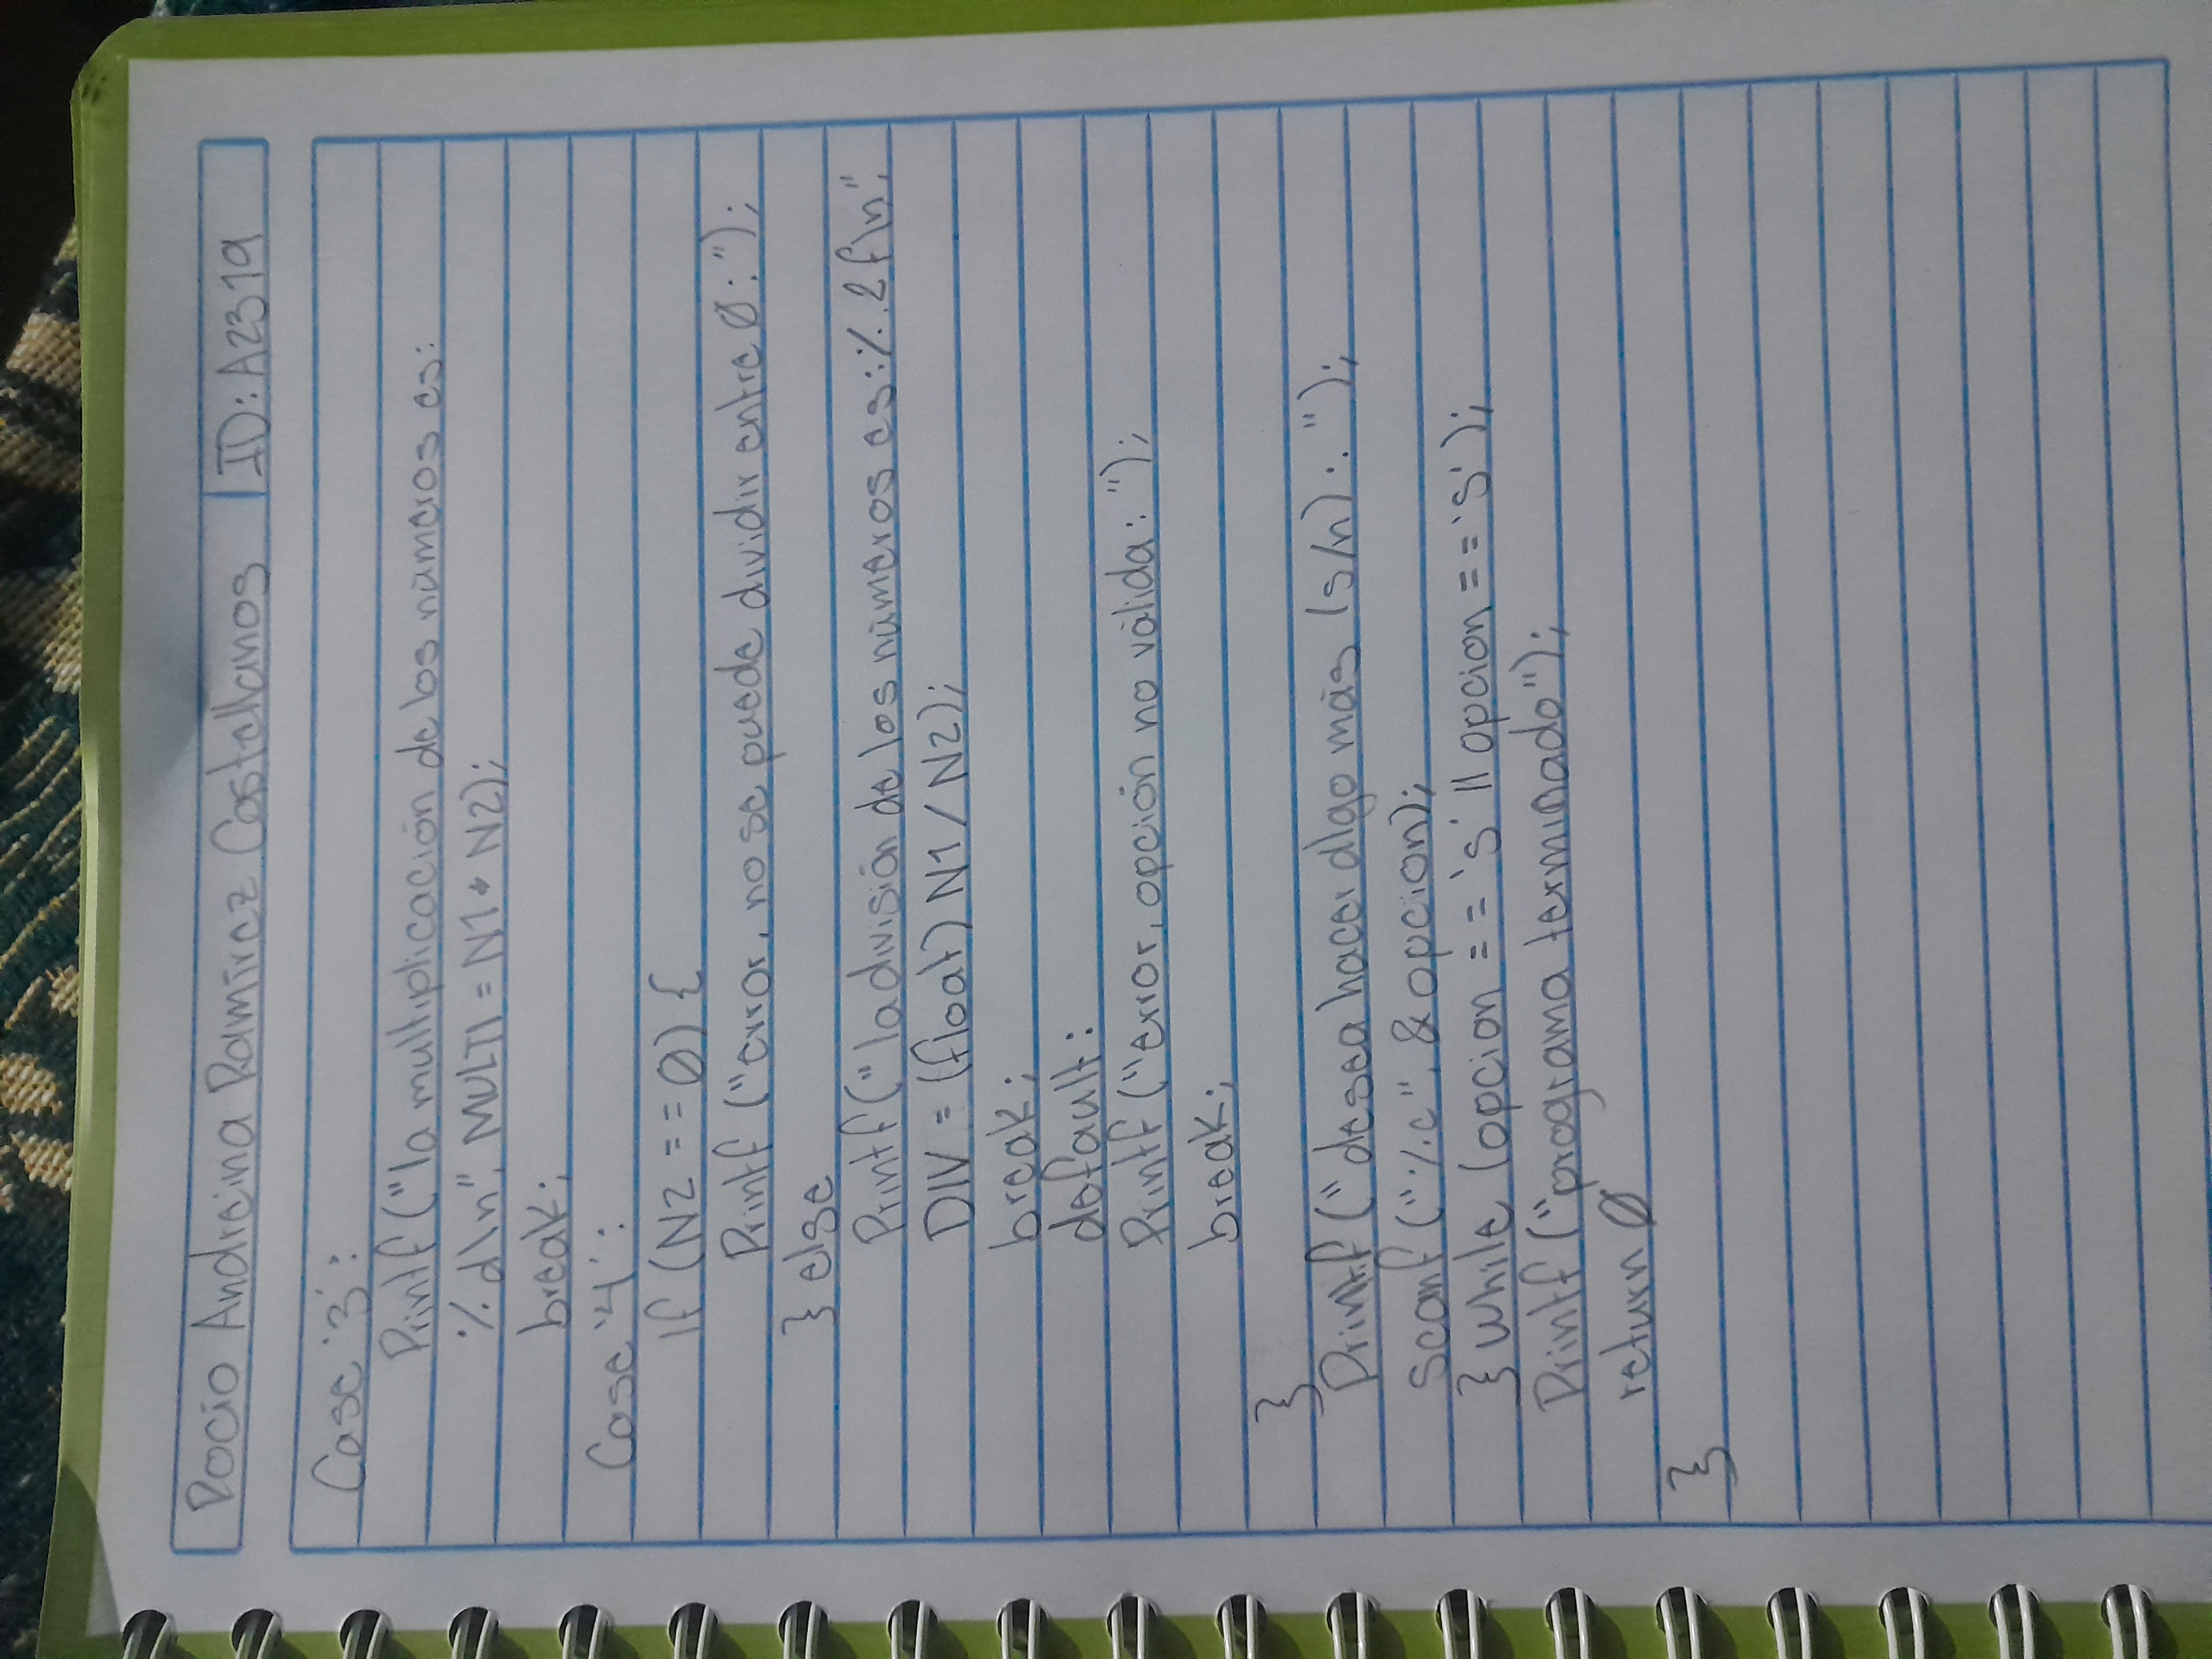 Rocio Andreina Ramírez Castellanos | ID: A2319
Case '3':
Printf ("la multiplicación de los números es:
%d\n", MULTI = N1 * N2);
break;
Case '4':
If (N2 == 0) {
Printf ("error, no se puede dividir entre 0: ");
} else
Printf (" la división de los números es: %.2f\n",
DIV = (float) N1 / N2);
break;
default:
Printf ("error, opción no válida: ");
break;
}
Printf (" desea hacer algo más (s/n): ");
Scanf (" %c", & opcion);
} while (opcion == 's' || opcion == 's');
Printf ("programa terminado");
return 0
}